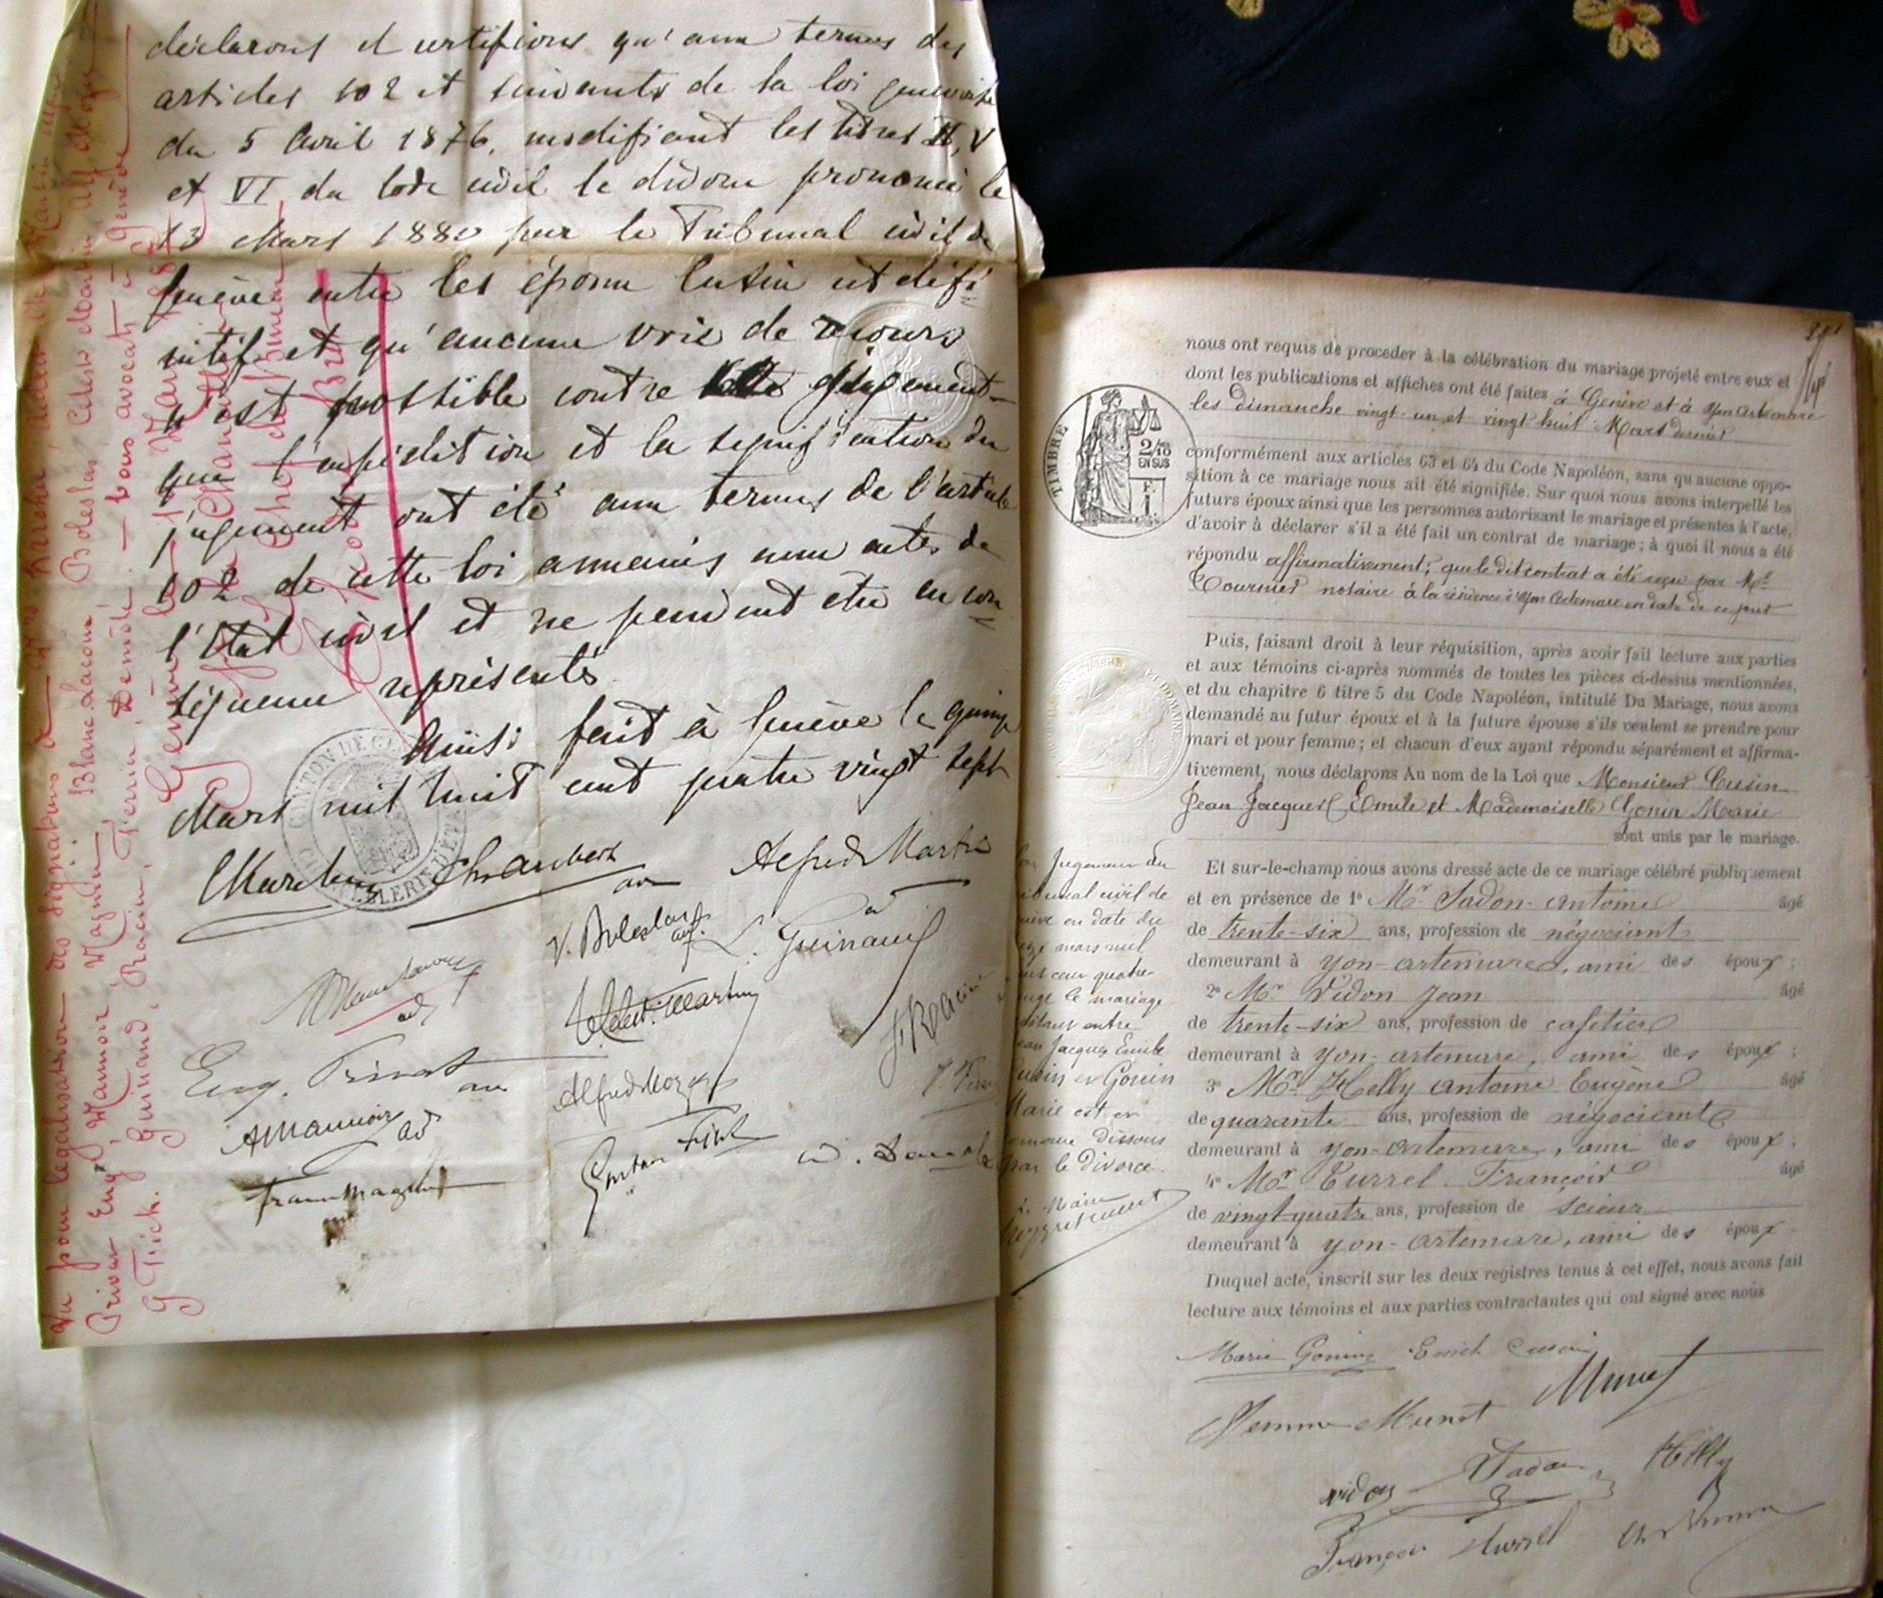 déclarons et certifions qu'aux termes des
articles 102 et suivants de la loi genevoise
du 5 Avril 1876, modifiant les titres II, V
et VI du Code civil le divorce prononcé le
13 Mars 1880 par le Tribunal civil de
Genève entre les époux Cusin est défi-
nitif et qu'aucune voie de recours
n'est possible contre ce jugement
que l'expédition et la signification du
jugement ont été aux termes de l'article
102 de cette loi annexés aux actes de
l'Etat civil et ne peuvent etre en con
séquence représentés
Ainsi fait à Genève le quinze
Mars mil huit cent quatre vingt sept
Alfred Martin
V. Boleslas
L. Guinand
Eug. Privat
A Mannoir
Vu pour légalisation des signatures de
Privat Eug, Mannoir, Magnin, Blanc, Lacour, Boleslas, Célest. Martin, Alf
G Frick, Guinand, Racine, — tous avocats à Genève
Genève le
CANTON DE GENÈVE
CHANCELLERIE D'ETAT
nous ont requis de procéder à la célébration du mariage projeté entre eux et
dont les publications et affiches ont été faites à Genève et à Yon artemare
les dimanche vingt-un et vingt huit Mars dernier
TIMBRE
2/10
EN SUS
F.
1.
conformément aux articles 63 et 64 du Code Napoléon, sans qu'aucune oppo-
sition à ce mariage nous ait été signifiée. Sur quoi nous avons interpellé les
futurs époux ainsi que les personnes autorisant le mariage et présentes à l'acte,
d'avoir à déclarer s'il a été fait un contrat de mariage; à quoi il nous a été
répondu affirmativement; que le dit contrat a été reçu par Me
Tournier notaire à la résidence d'Yon Artemare en date de ce jour
Puis, faisant droit à leur réquisition, après avoir fait lecture aux parties
et aux témoins ci-après nommés de toutes les pièces ci-dessus mentionnées,
et du chapitre 6 titre 5 du Code Napoléon, intitulé Du Mariage, nous avons
demandé au futur époux et à la future épouse s'ils veulent se prendre pour
mari et pour femme; et chacun d'eux ayant répondu séparément et affirma-
tivement, nous déclarons Au nom de la Loi que Monsieur Cusin
Jean Jacques Emile et Mademoiselle Gonin Marie
sont unis par le mariage.
Et sur-le-champ nous avons dressé acte de ce mariage célébré publiquement
et en présence de 1° Mr Jadon Antoine âgé
de trente-six ans, profession de négociant
demeurant à Yon-artemare, ami des époux;
2° Mr Vidon Jean âgé
de trente-six ans, profession de cafetier
demeurant à Yon-artemare, ami des époux;
3° Mr Helly Antoine Eugène âgé
de quarante ans, profession de négociant
demeurant à Yon-artemare, ami des époux;
4° Mr Turrel François âgé
de vingt-quatre ans, profession de scieur
demeurant à Yon-artemare, ami des époux
Duquel acte, inscrit sur les deux registres tenus à cet effet, nous avons fait
lecture aux témoins et aux parties contractantes qui ont signé avec nous
Jugement du
civil de
en date du
mars mil
cent quatre-
le mariage
entre
Jean Jacques Emile
Cusin et Gonin
Marie est et
demeure dissous
par le divorce.
Le Maire
Marie Gonin Emile Cusin
Femme Munet Munet
vidon Jadon Helly
François Turrel